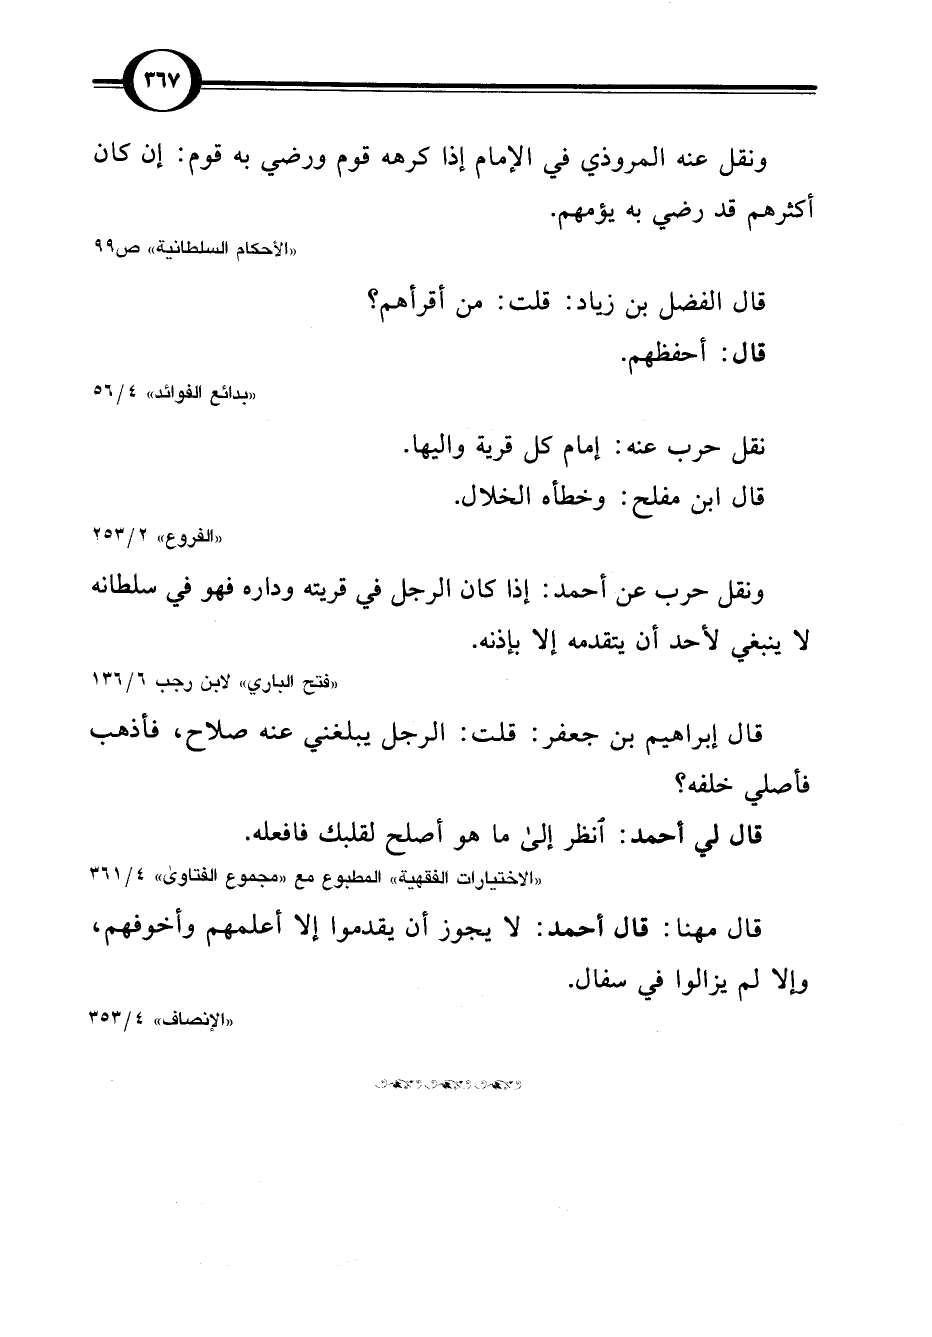 ٣٦٧
ونقل عنه المروذي في الإمام إذا كرهه قوم ورضي به قوم: إن كان
أكثرهم قد رضي به يؤمهم.
«الأحكام السلطانية» ص٩٩
قال الفضل بن زياد: قلت: من أقرأهم؟
قال: أحفظهم.
«بدائع الفوائد» ٤/ ٥٦
نقل حرب عنه: إمام كل قرية واليها.
قال ابن مفلح: وخطأه الخلال.
«الفروع» ٢/ ٢٥٣
ونقل حرب عن أحمد: إذا كان الرجل في قريته وداره فهو في سلطانه
لا ينبغي لأحد أن يتقدمه إلا بإذنه.
«فتح الباري» لابن رجب ٦/ ١٣٦
قال إبراهيم بن جعفر: قلت: الرجل يبلغني عنه صلاح، فأذهب
فأصلي خلفه؟
قال لي أحمد: ٱنظر إلىٰ ما هو أصلح لقلبك فافعله.
«الاختيارات الفقهية» المطبوع مع «مجموع الفتاوىٰ» ٤/ ٣٦١
قال مهنا: قال أحمد: لا يجوز أن يقدموا إلا أعلمهم وأخوفهم،
وإلا لم يزالوا في سفال.
«الإنصاف» ٤/ ٣٥٣